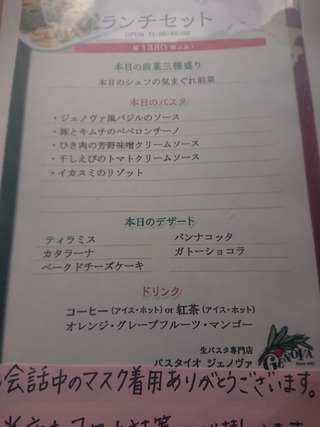 ランチセット
OPEN 11:00-15:00
¥1380(税込み)
本日の前菜三種盛り
本日のシェフの気まぐれ前菜
本日のパスタ
・ジェノヴァ風バジルのソース
・豚とキムチのペペロンチーノ
・ひき肉の芳野味噌クリームソース
・干しえびのトマトクリームソース
・イカスミのリゾット
本日のデザート
ティラミス パンナコッタ
カタラーナ ガトーショコラ
ベークドチーズケーキ
ドリンク
コーヒー(アイス・ホット) or 紅茶(アイス・ホット)
オレンジ・グレープフルーツ・マンゴー
生パスタ専門店
パスタイオ ジェノヴァ
GENOVA
会話中のマスク着用ありがとうございます。